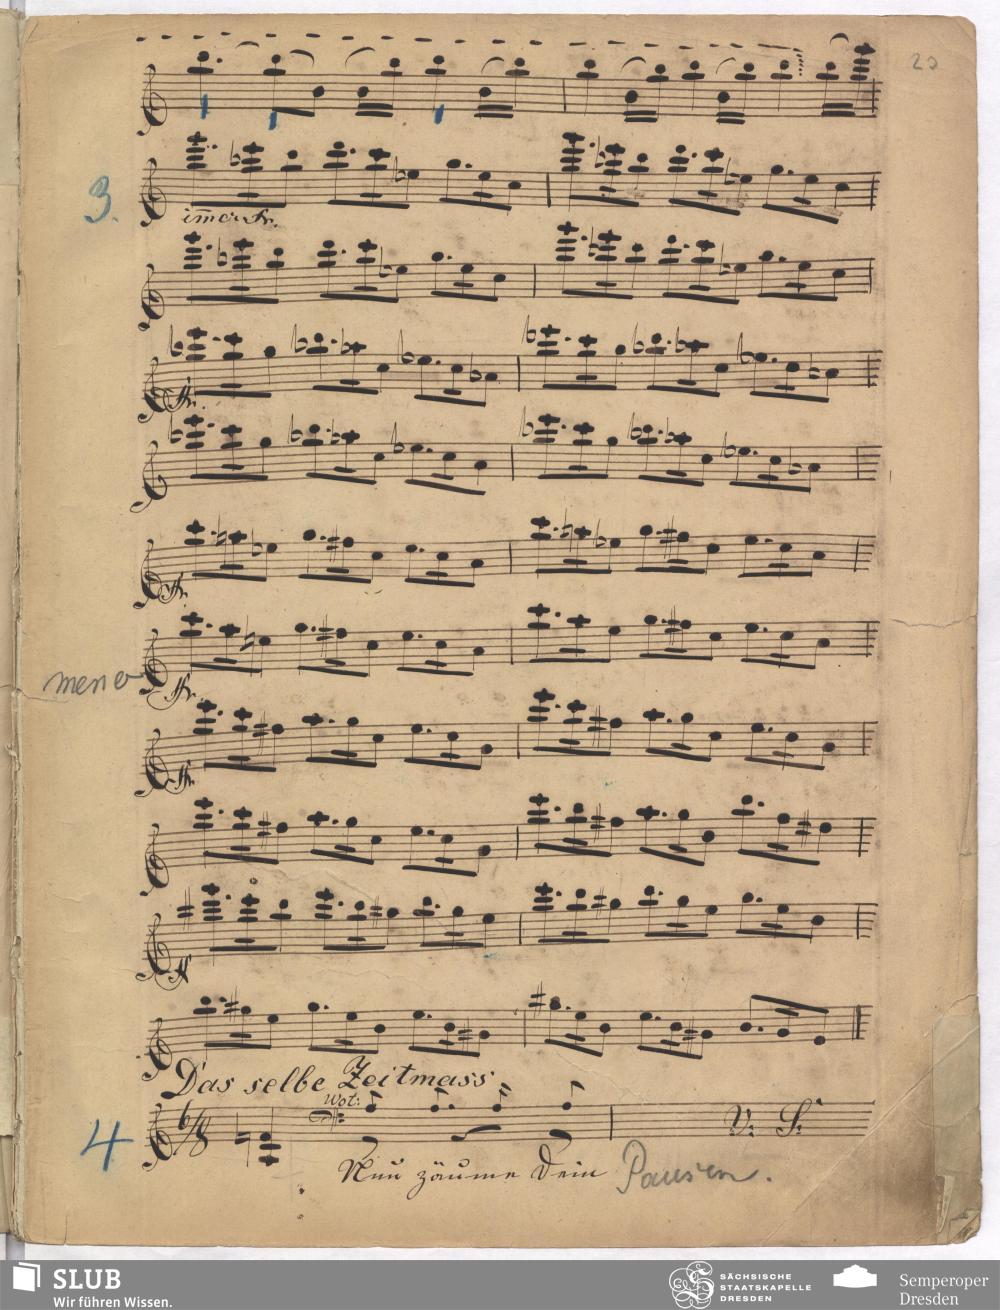 23
3.
immer fr.
fr.
fr.
fr.
fr.
Das selbe Zeitmass
Wot:
4
6/8
V: S:
Nun zäume Dein Pausen.
SLUB
Wir führen Wissen.
SÄCHSISCHE
STAATSKAPELLE
DRESDEN
Semperoper
Dresden